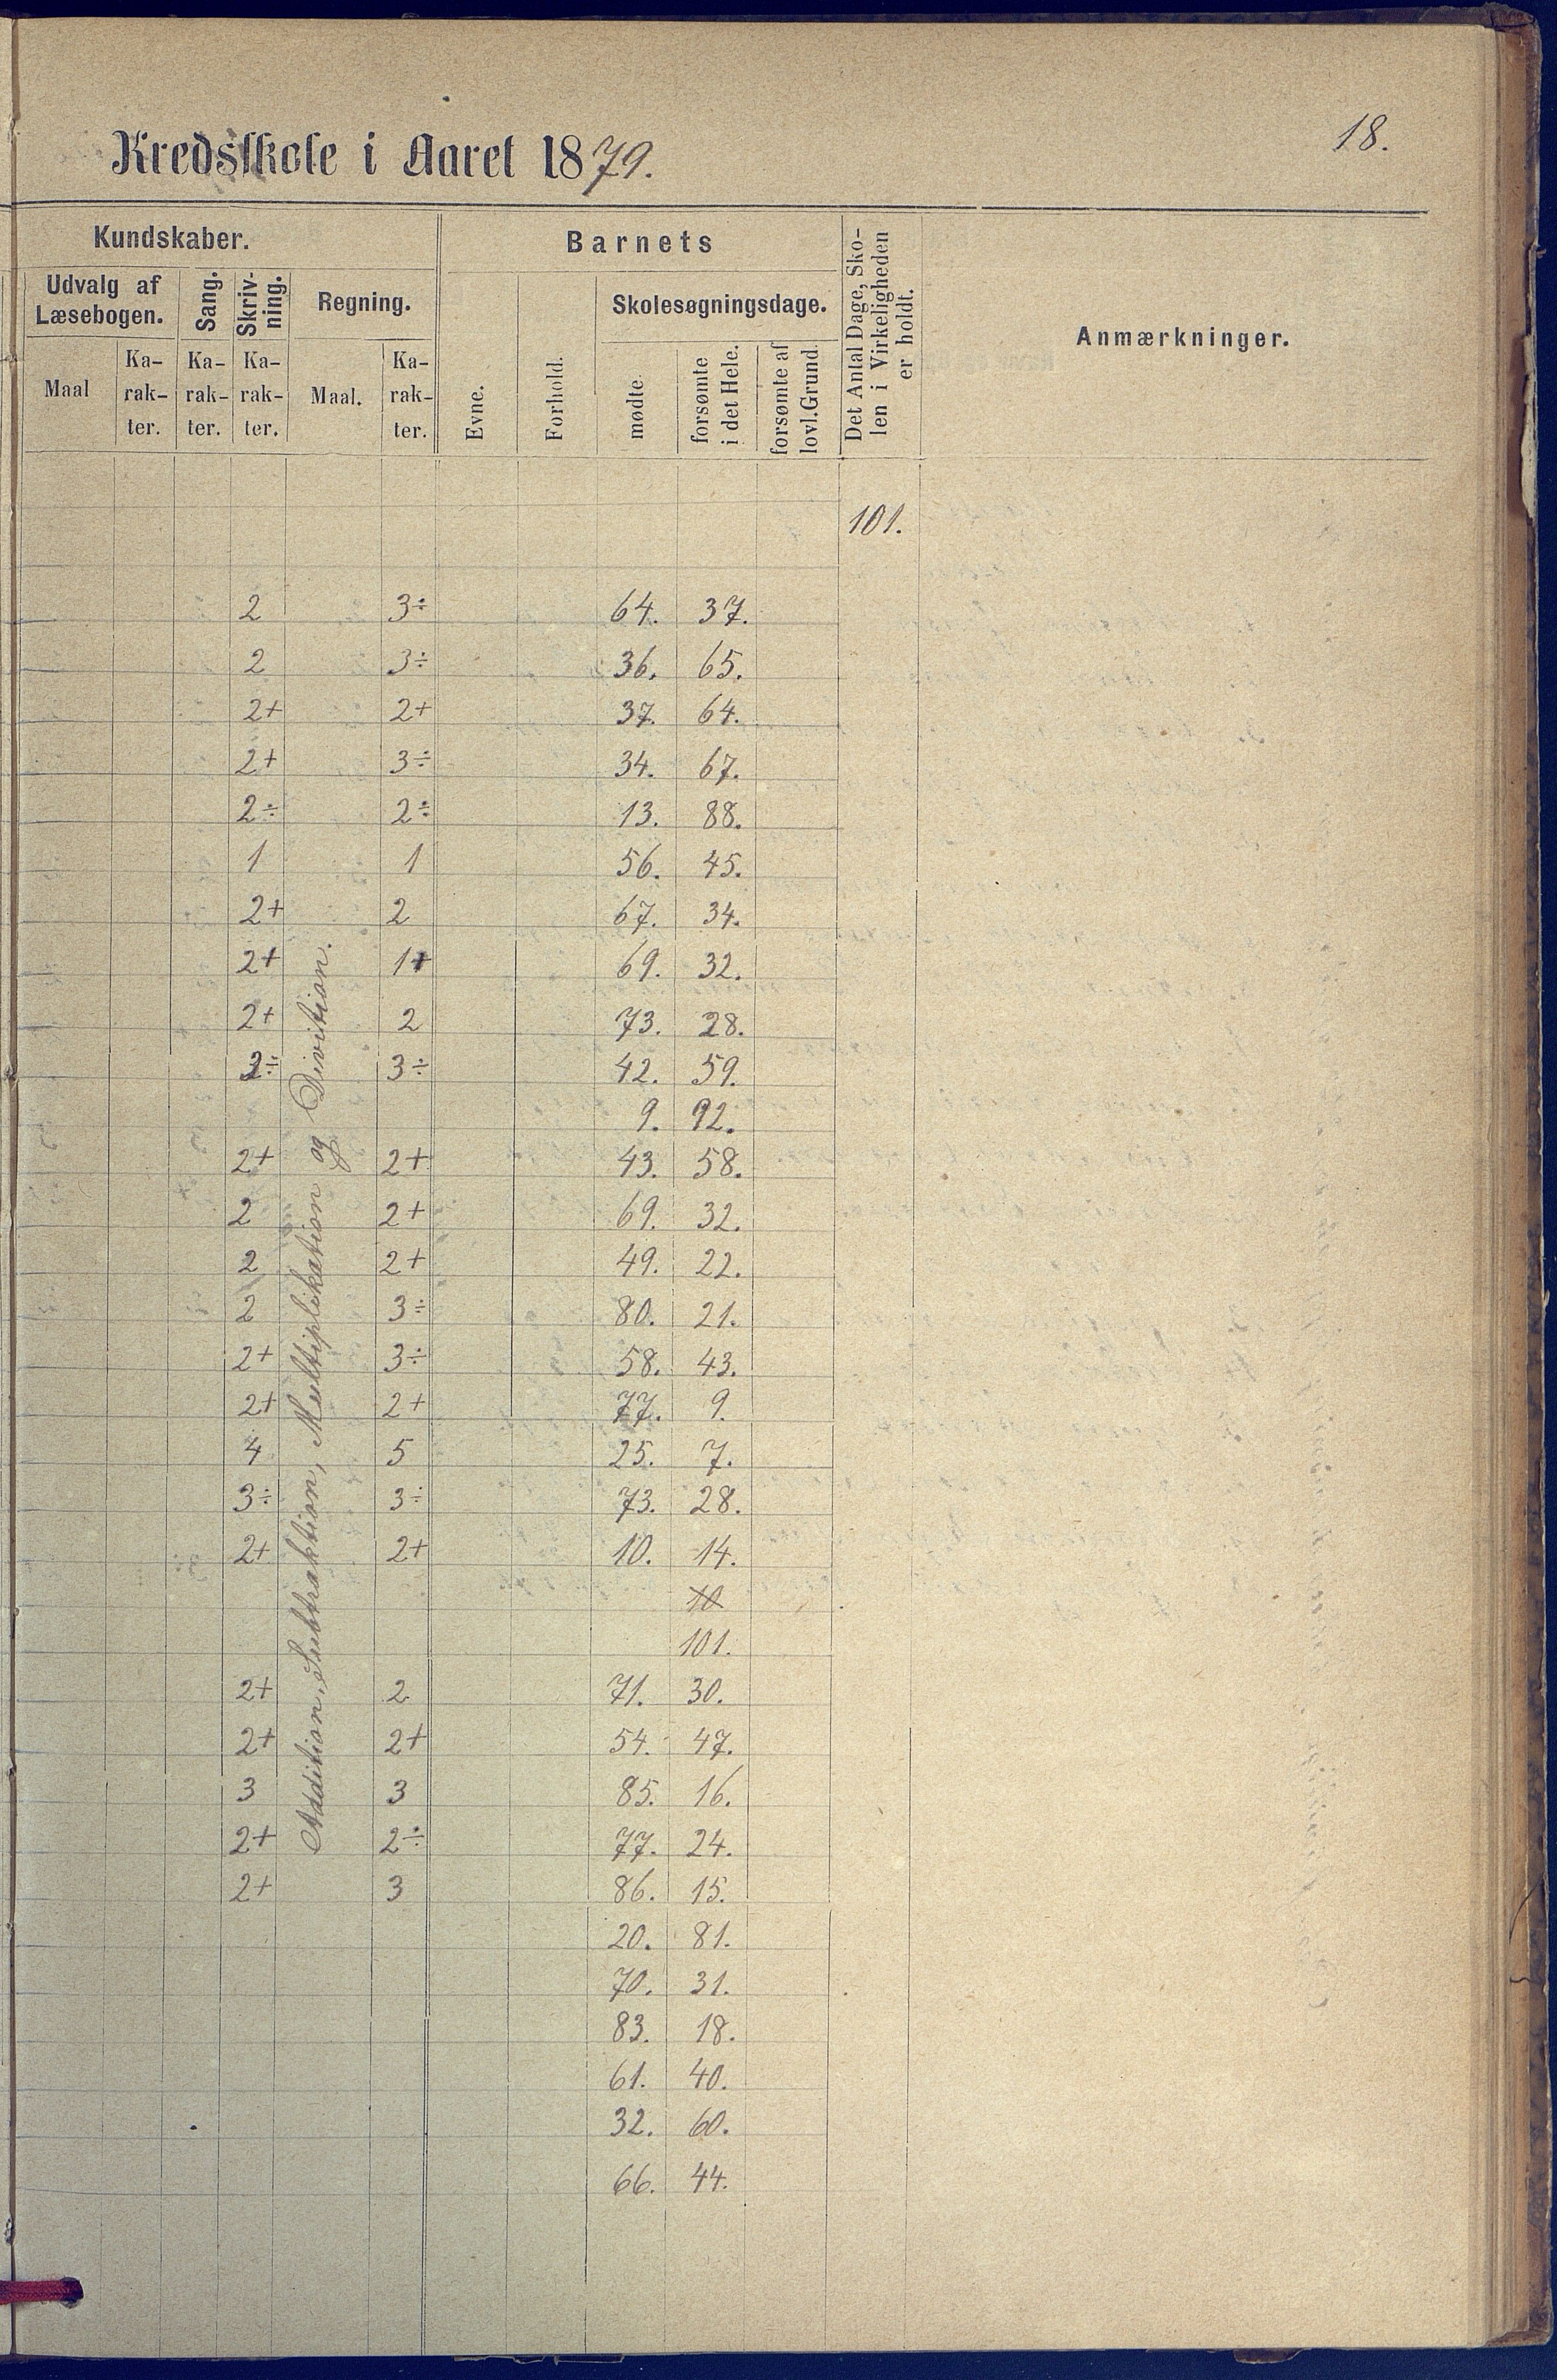 18.
Kredsskole i Aaret 1879.
Kundskaber.
Barnets
Det Antal Dage, Sko-
len i Virkeligheden
er holdt.
Anmærkninger.
Udvalg af
Læsebogen.
Sang.
Skriv-
ning.
Regning.
Skolesøgningsdage.
Maal
Ka-
rak-
ter.
Ka-
rak-
ter.
Ka-
rak-
ter.
Maal.
Ka-
rak-
ter.
Evne.
Forhold.
mødte.
forsømte
i det Hele.
forsømte af
lovl. Grund.
101.
Addition, Subtraktion, Multiplikation og Divition.
2 3÷ 64. 37.
2 3÷ 36. 65.
2+ 2+ 37. 64.
2+ 3÷ 34. 67.
2÷ 2÷ 13. 88.
1 1 56. 45.
2+ 2 67. 34.
2+ 1+ 69. 32.
2+ 2 73. 28.
3÷ 42. 59.
9. 92.
2+ 2+ 43. 58.
2 2+ 69. 32.
2 2+ 49. 22.
2 3÷ 80. 21.
2+ 3÷ 58. 43.
2+ 2+ 77. 9.
4 5 25. 7.
3÷ 3÷ 73. 28.
2+ 2+ 10. 14.
10
101.
2+ 2 71. 30.
2+ 2+ 54. 47.
3 3 85. 16.
2+ 2÷ 77. 24.
2+ 3 86. 15.
20. 81.
70. 31.
83. 18.
61. 40.
32. 60.
66. 44.